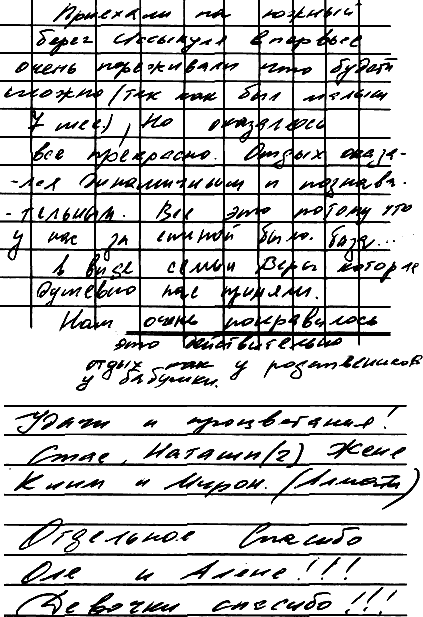 Приехали на южный
берег Иссыкуля впервые
очень переживали что будет
сложно (так как был малыш
7 мес), Но оказалось
все прекрасно. Отдых оказа-
-лся динамичным и познава-
-тельным. Все это потому что
у нас за спиной была база...
в виде семьи Веры которые
душевно нас приняли.
Нам очень понравилось
это действительно
отдых как у родственников
у бабушки.
Удачи и процветания!
Стас, Наташи (2) Женя
Клим и Мирон. (Алматы)
Отдельное Спасибо
Оле и Алене!!!
Девочки спасибо!!!